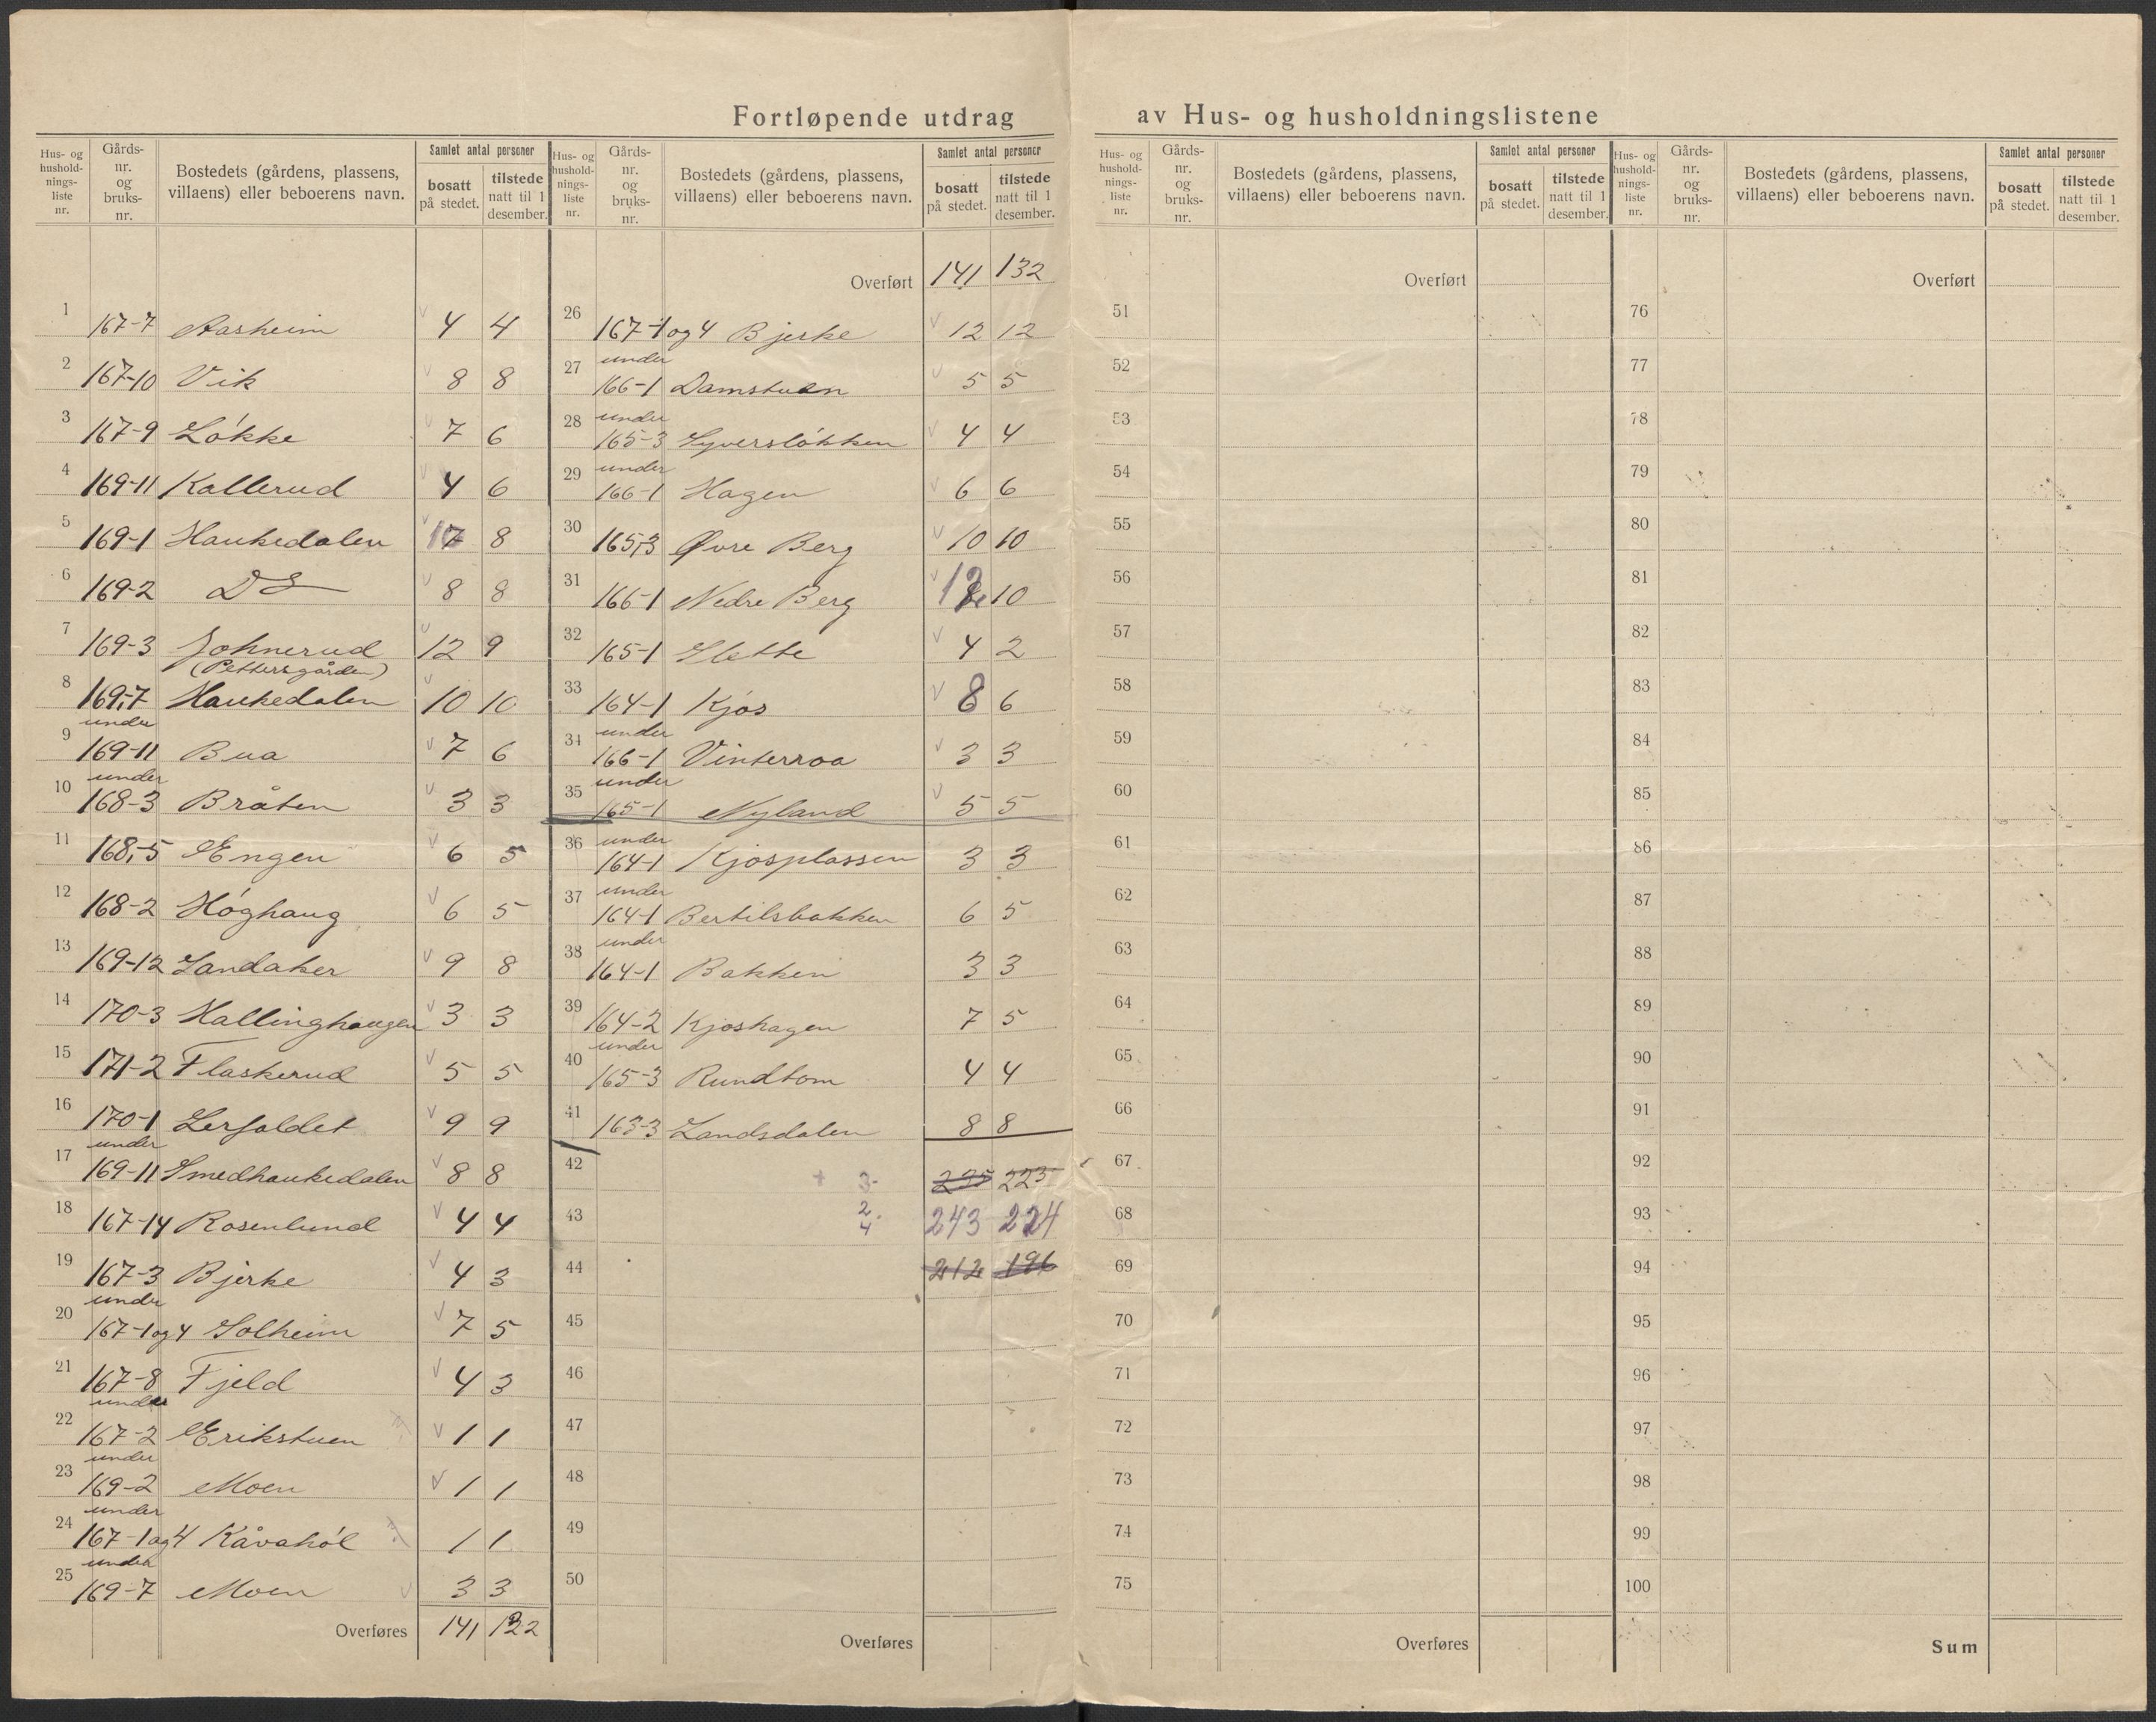 Fortløpende utdrag av Hus- og husholdningslistene
Hus- og husholdningsliste nr.
Gårds-nr. og bruks-nr.
Bostedets (gårdens, plassens, villaens) eller beboerens navn.
Samlet antal personer
bosatt på stedet.
tilstede natt til 1 desember.
1 167-7 Aasheim 4 4
2 167-10 Vik 8 8
3 167-9 Løkke 7 6
4 169-11 Kallerud 4 6
5 169-1 Haukedalen 8
6 169-2 Do 8 8
7 169-3 Johnerud 12 9
(Pettersgården)
8 169,7 Haukedalen 10 10
9 under 169-11 Bua 7 6
10 under 168-3 Bråten 3 3
11 168,5 Engen 6 5
12 168-2 Høghaug 6 5
13 169-12 Sandaker 9 8
14 170-3 Hallinghaugen 3 3
15 171-2 Flaskerud 5 5
16 170-1 Lerfaldet 9 9
17 under 169-11 Smedhaukedalen 8 8
18 167-14 Rosenlund 4 4
19 167-3 Bjerke 4 3
20 under 167-1 og 4 Solheim 7 5
21 167-8 Fjeld 4 3
22 under 167-2 Erikstuen 1 1
23 under 169-2 Moen 1 1
24 under 167-1 og 4 Kåvahøl 1 1
25 under 169-7 Moen 3 3
Overføres 141 132
Hus- og husholdningsliste nr.
Gårds-nr. og bruks-nr.
Bostedets (gårdens, plassens, villaens) eller beboerens navn.
Samlet antal personer
bosatt på stedet.
tilstede natt til 1 desember.
Overført 141 132
26 167-1 og 4 Bjerke 12 12
27 under 166-1 Damstuen 5 5
28 under 165-3 Syversløkken 4 4
29 under 166-1 Hagen 6 6
30 165,3 Øvre Berg 10 10
31 166-1 Nedre Berg 10
32 165-1 Slette 4 2
33 164-1 Kjos 8 6
34 under 166-1 Vinterroa 3 3
35 under 165-1 Nyland 5 5
36 under 164-1 Kjosplassen 3 3
37 under 164-1 Bertilsbakken 6 5
38 under 164-1 Bakken 3 3
39 164-2 Kjoshagen 7 5
40 under 165-3 Rundtom 4 4
41 163-3 Landsdalen 8 8
42 + 3 235 223
43 2 4 243 224
44 212 196
45
46
47
48
49
50
Overføres
Hus- og husholdningsliste nr.
Gårds-nr. og bruks-nr.
Bostedets (gårdens, plassens, villaens) eller beboerens navn.
Samlet antal personer
bosatt på stedet.
tilstede natt til 1 desember.
Overført
51
52
53
54
55
56
57
58
59
60
61
62
63
64
65
66
67
68
69
70
71
72
73
74
75
Overføres
Hus- og husholdningsliste nr.
Gårds-nr. og bruks-nr.
Bostedets (gårdens, plassens, villaens) eller beboerens navn.
Samlet antal personer
bosatt på stedet.
tilstede natt til 1 desember.
Overført
76
77
78
79
80
81
82
83
84
85
86
87
88
89
90
91
92
93
94
95
96
97
98
99
100
Sum